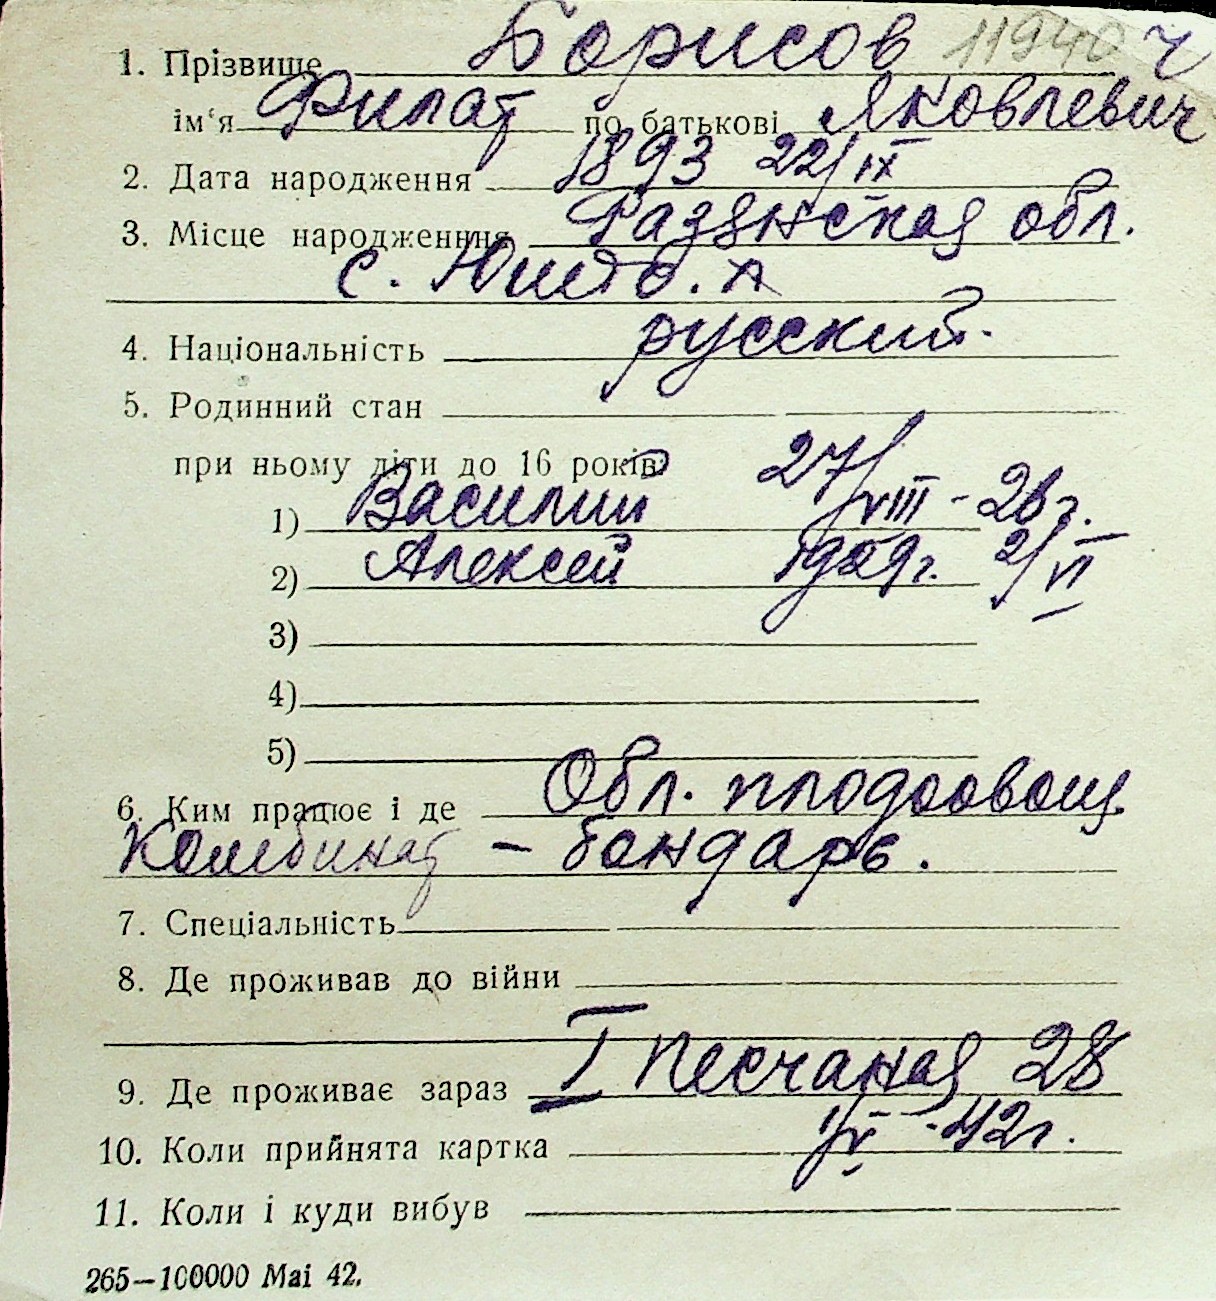 1. Прізвище Борисов 11940 Ч
ім‘я Филат по батькові Яковлевич
2. Дата народження 1893 22/IX
3. Місце народженння Разянская обл.
с.
4. Національність русский.
5. Родинний стан
при ньому діти до 16 років:
1) Василий 27/VIII - 26 г.
2) Алексей 1929 г. 2/VI
3)
4)
5)
6. Ким працює і де Обл. плодоовощ.
Комбинат - бондарь.
7. Спеціальність
8. Де проживав до війни
9. Де проживає зараз I Песчаная 28
10. Коли прийнята картка 1/V - 42 г.
11. Коли і куди вибув
265—100000 Mai 42.